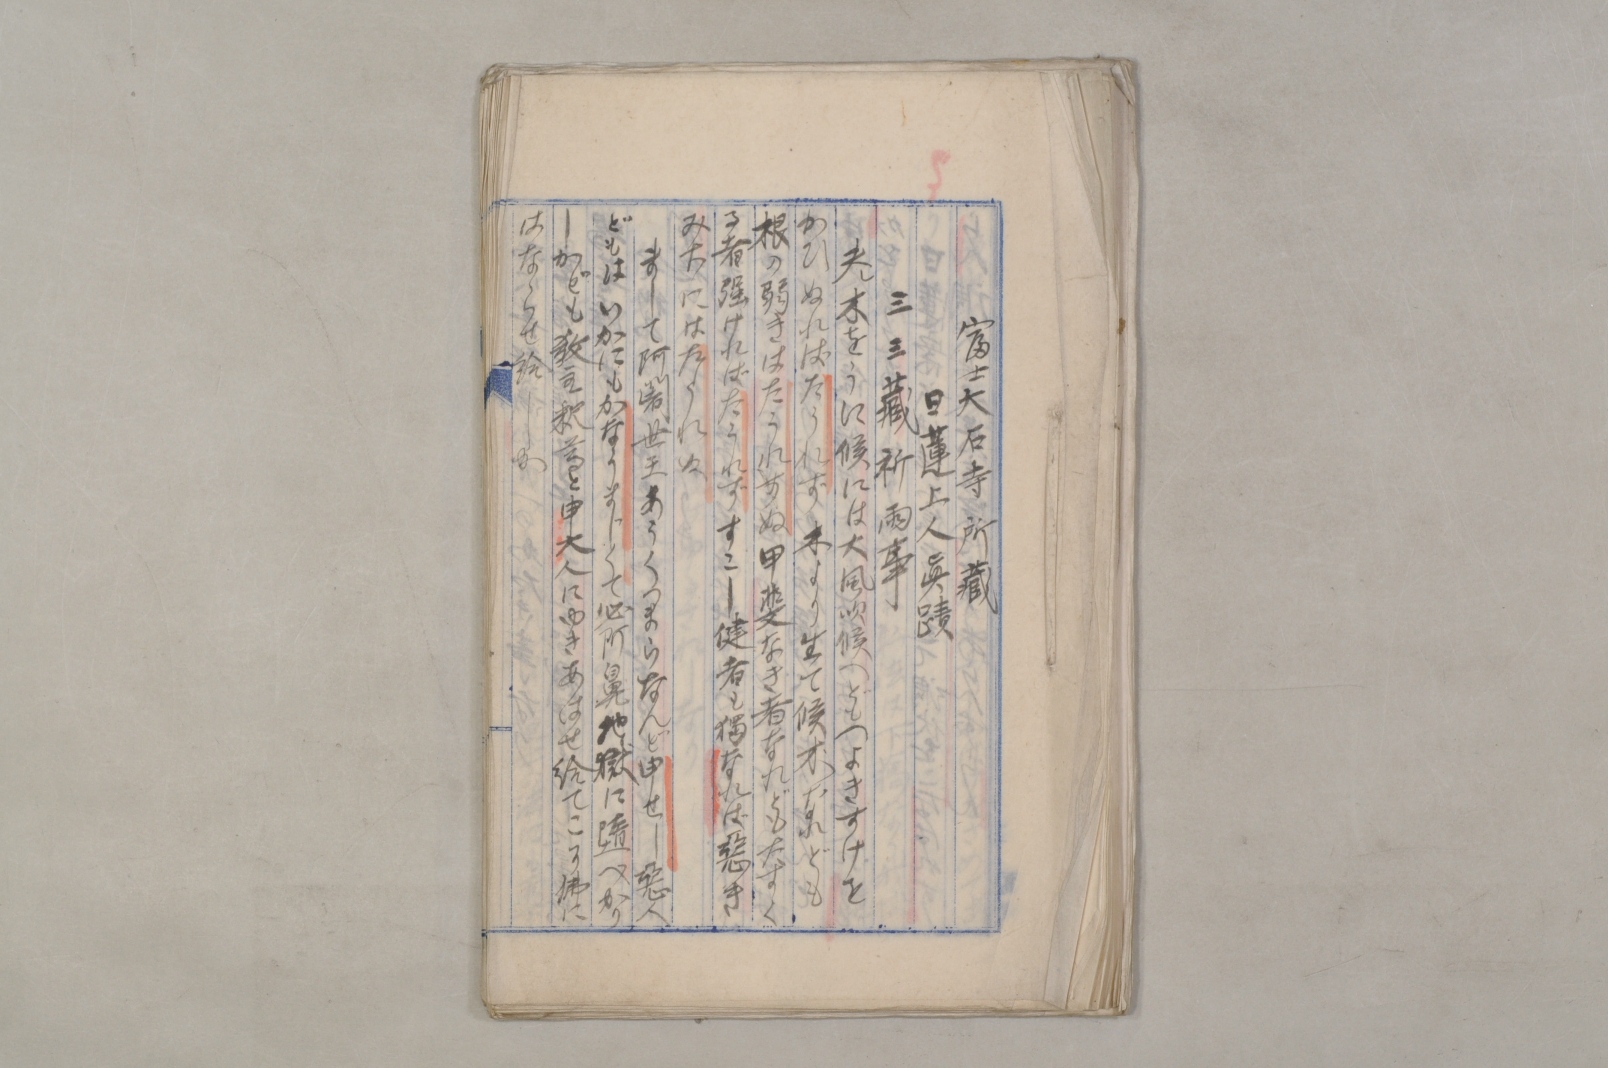 富士大石寺所藏
日蓮上人眞蹟
三三藏祈雨事
夫木をうに候には大風吹候へどもつよきすけを
かひぬればたうれず木より生て候木なれども
根の弱きはたうれぬ甲斐なき者なれどもたすく
る者强ければたうれずすこし健者も獨なれば惡き
みちにはたうれぬ
まして阿闍世王ありくつまらなんど申せし惡人
どもはいかにもかなうまじくて必阿鼻地獄に墮べかり
しかども敎主釋尊と申大人にゆきあはせ給てこそ佛に
はならせ給しか